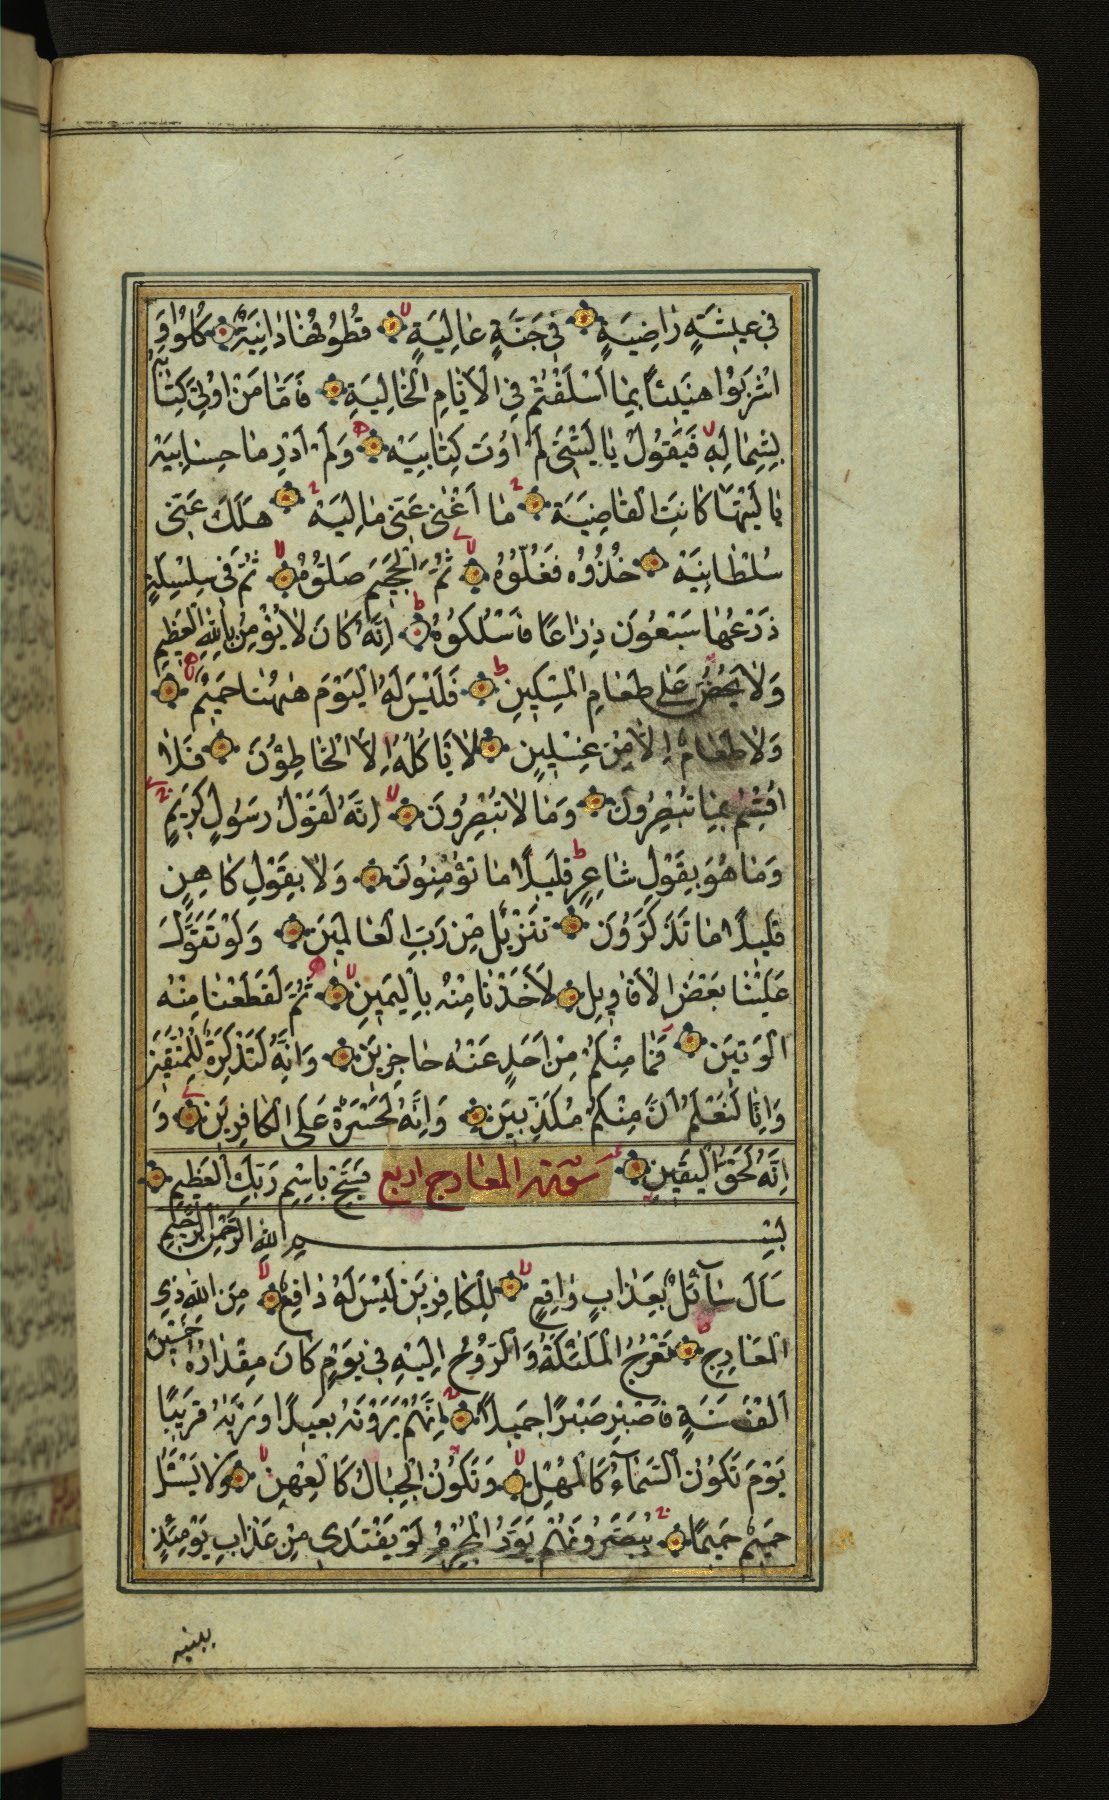 فِي عِيشَةٍ رَاضِيَةٍ فِي جَنَّةٍ عَالِيَةٍ قُطُوفُهَا دَانِيَةٌ كُلُوا وَ
اشْرَبُوا هَنِيئًا بِمَا أَسْلَفْتُمْ فِي الْأَيَّامِ الْخَالِيَةِ فَأَمَّا مَنْ أُوتِيَ كِتَابَهُ
بِشِمَالِهِ فَيَقُولُ يَا لَيْتَنِي لَمْ أُوتَ كِتَابِيَهْ وَلَمْ أَدْرِ مَا حِسَابِيَهْ
يَا لَيْتَهَا كَانَتِ الْقَاضِيَةَ مَا أَغْنَى عَنِّي مَالِيَهْ هَلَكَ عَنِّي
سُلْطَانِيَهْ خُذُوهُ فَغُلُّوهُ ثُمَّ الْجَحِيمَ صَلُّوهُ ثُمَّ فِي سِلْسِلَةٍ
ذَرْعُهَا سَبْعُونَ ذِرَاعًا فَاسْلُكُوهُ إِنَّهُ كَانَ لَا يُؤْمِنُ بِاللَّهِ الْعَظِيمِ
وَلَا يَحُضُّ عَلَى طَعَامِ الْمِسْكِينِ فَلَيْسَ لَهُ الْيَوْمَ هَهُنَا حَمِيمٌ
وَلَا طَعَامٌ إِلَّا مِنْ غِسْلِينٍ لَا يَأْكُلُهُ إِلَّا الْخَاطِؤُنَ فَلَا
أُقْسِمُ بِمَا تُبْصِرُونَ وَمَا لَا تُبْصِرُونَ إِنَّهُ لَقَوْلُ رَسُولٍ كَرِيمٍ
وَمَا هُوَ بِقَوْلِ شَاعِرٍ قَلِيلًا مَا تُؤْمِنُونَ وَلَا بِقَوْلِ كَاهِنٍ
قَلِيلًا مَا تَذَكَّرُونَ تَنْزِيلٌ مِنْ رَبِّ الْعَالَمِينَ وَلَوْ تَقَوَّلَ
عَلَيْنَا بَعْضَ الْأَقَاوِيلِ لَأَخَذْنَا مِنْهُ بِالْيَمِينِ ثُمَّ لَقَطَعْنَا مِنْهُ
الْوَتِينَ فَمَا مِنْكُمْ مِنْ أَحَدٍ عَنْهُ حَاجِزِينَ وَإِنَّهُ لَتَذْكِرَةٌ لِلْمُتَّقِينَ
وَإِنَّا لَنَعْلَمُ أَنَّ مِنْكُمْ مُكَذِّبِينَ وَإِنَّهُ لَحَسْرَةٌ عَلَى الْكَافِرِينَ وَ
إِنَّهُ لَحَقُّ الْيَقِينِ سورة المعارج اربع فَسَبِّحْ بِاسْمِ رَبِّكَ الْعَظِيمِ
بِسْمِ اللَّهِ الرَّحْمَنِ الرَّحِيمِ
سَأَلَ سَآئِلٌ بِعَذَابٍ وَاقِعٍ لِلْكَافِرِينَ لَيْسَ لَهُ دَافِعٌ مِنَ اللَّهِ ذِي
الْمَعَارِجِ تَعْرُجُ الْمَلَئِكَةُ وَالرُّوحُ إِلَيْهِ فِي يَوْمٍ كَانَ مِقْدَارُهُ خَمْسِينَ
أَلْفَ سَنَةٍ فَاصْبِرْ صَبْرًا جَمِيلًا إِنَّهُمْ يَرَوْنَهُ بَعِيدًا وَنَرَيهُ قَرِيبًا
يَوْمَ تَكُونُ السَّمَآءُ كَالْمُهْلِ وَتَكُونُ الْجِبَالُ كَالْعِهْنِ وَلَا يَسْئَلُ
حَمِيمٌ حَمِيمًا يُبَصَّرُونَهُمْ يَوَدُّ الْمُجْرِمُ لَوْ يَفْتَدِي مِنْ عَذَابِ يَوْمِئِذٍ
ببنيه